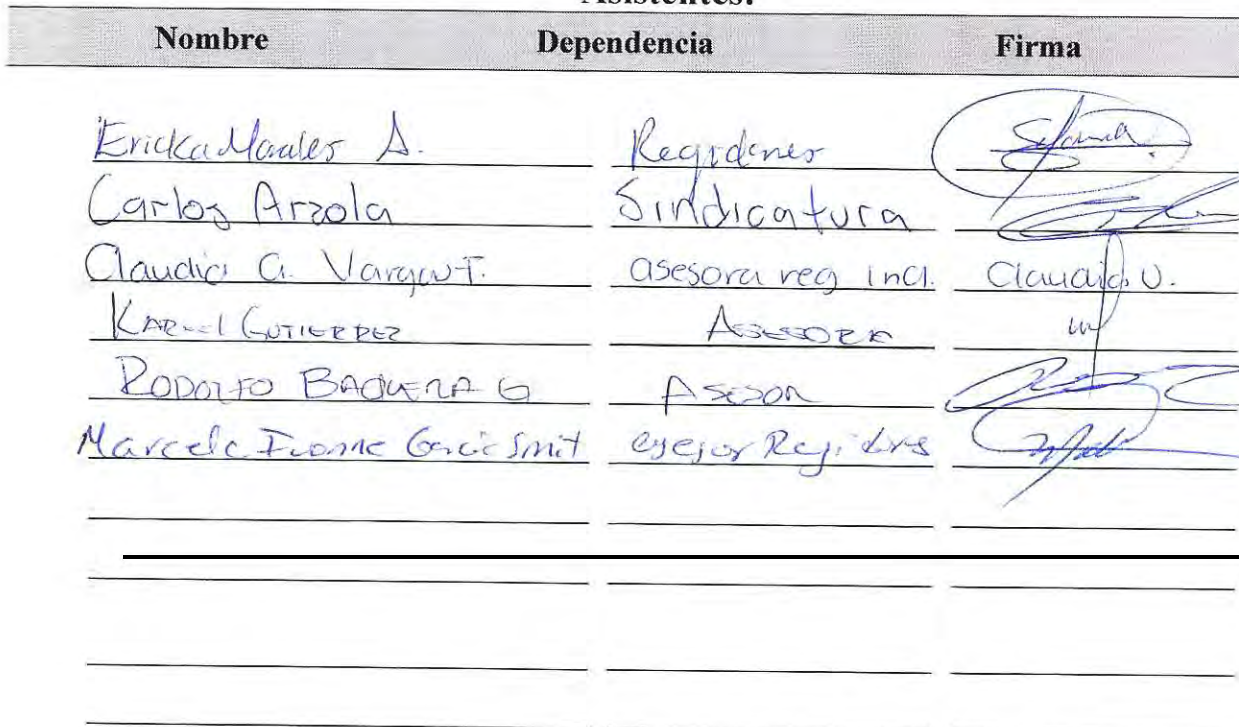 Asistentes:
Nombre Dependencia Firma
Ericka Morales A. Regidores
Carlos Arzola Sindicatura
Claudia G. Vargas T. asesora reg incl. Claudia V.
KAREL GUTIERREZ ASESORA
RODOLFO BAQUERA G ASESOR
Marcela Ivonne García Smit asesor Regidores